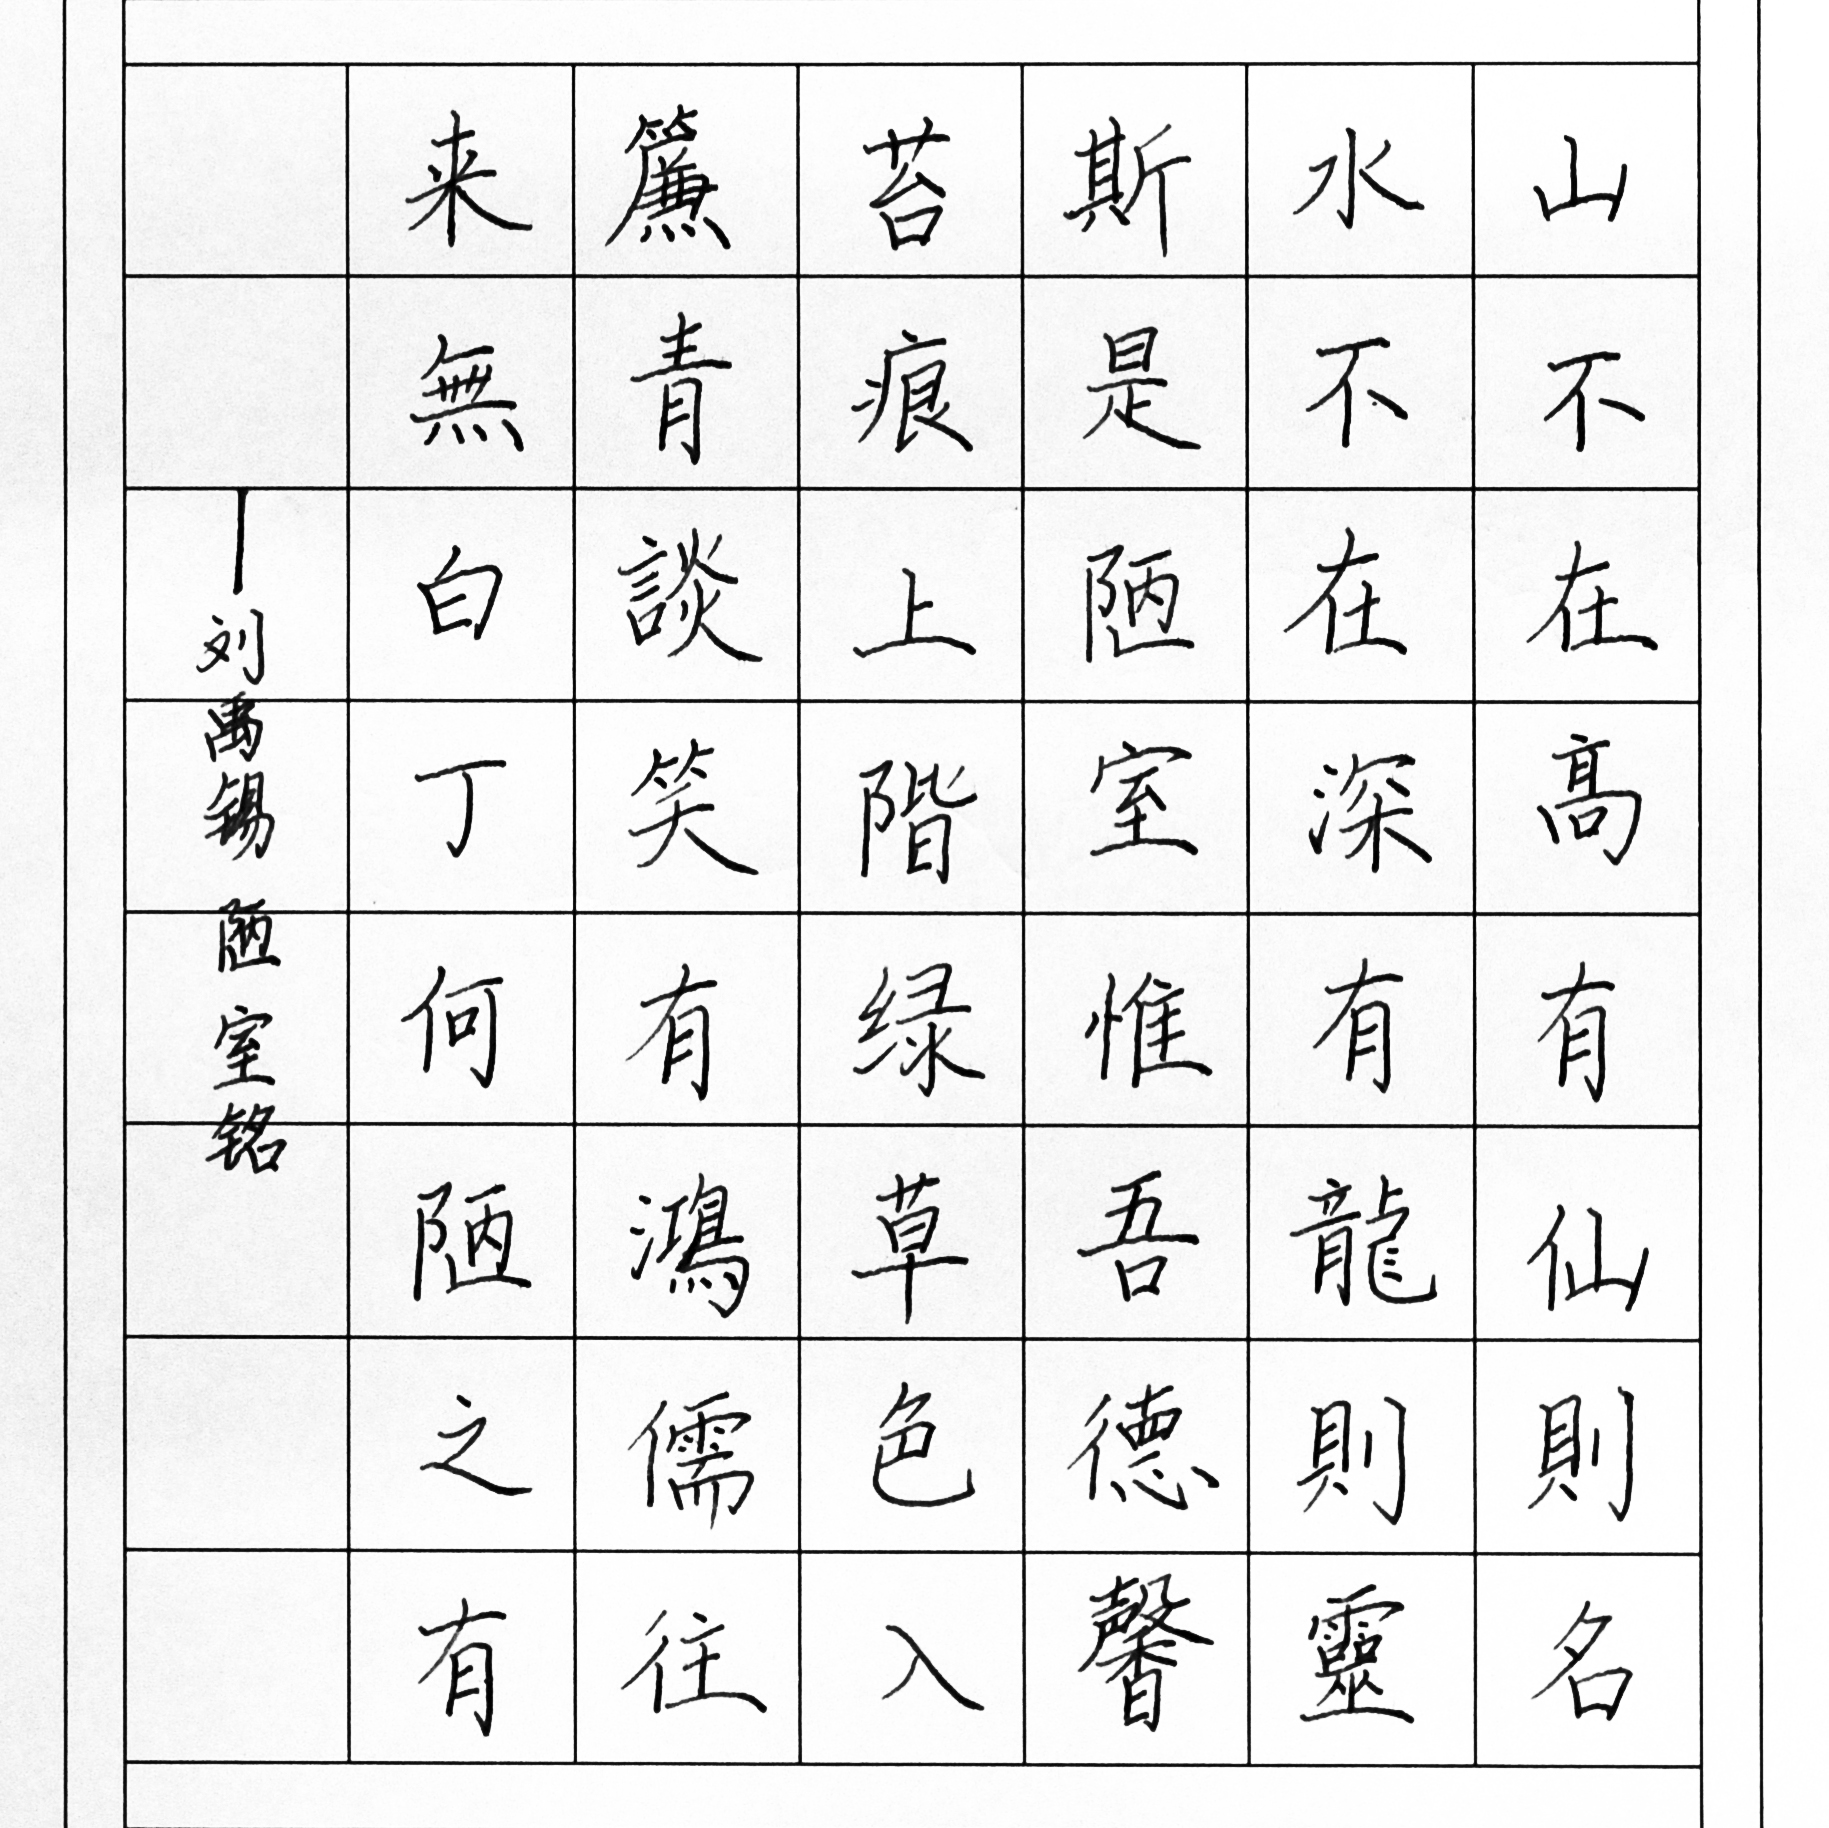 山不在高有仙則名
水不在深有龍則靈
斯是陋室惟吾德馨
苔痕上階绿草色入
簾青談笑有鴻儒往
来無白丁何陋之有
—刘禹锡 陋室铭